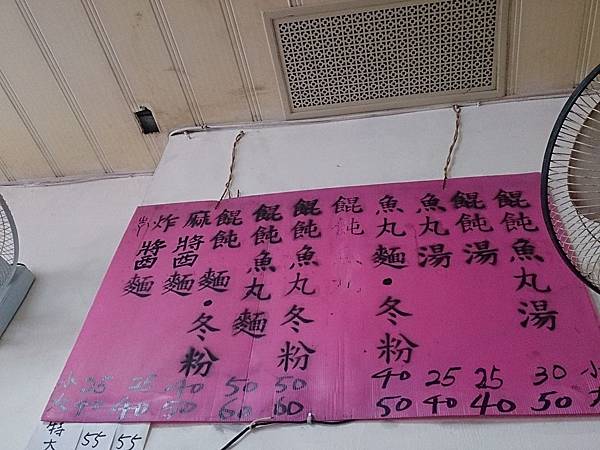 餛飩魚丸湯
餛飩湯
魚丸湯
魚丸麵•冬粉
餛飩
餛飩魚丸冬粉
餛飩魚丸麵
餛飩麵•冬粉
麻醬麵
炸醬麵
小 25 25 40 50 50 40 25 25 30 小
大 40 40 50 60 60 50 40 40 50 大
特大 55 55